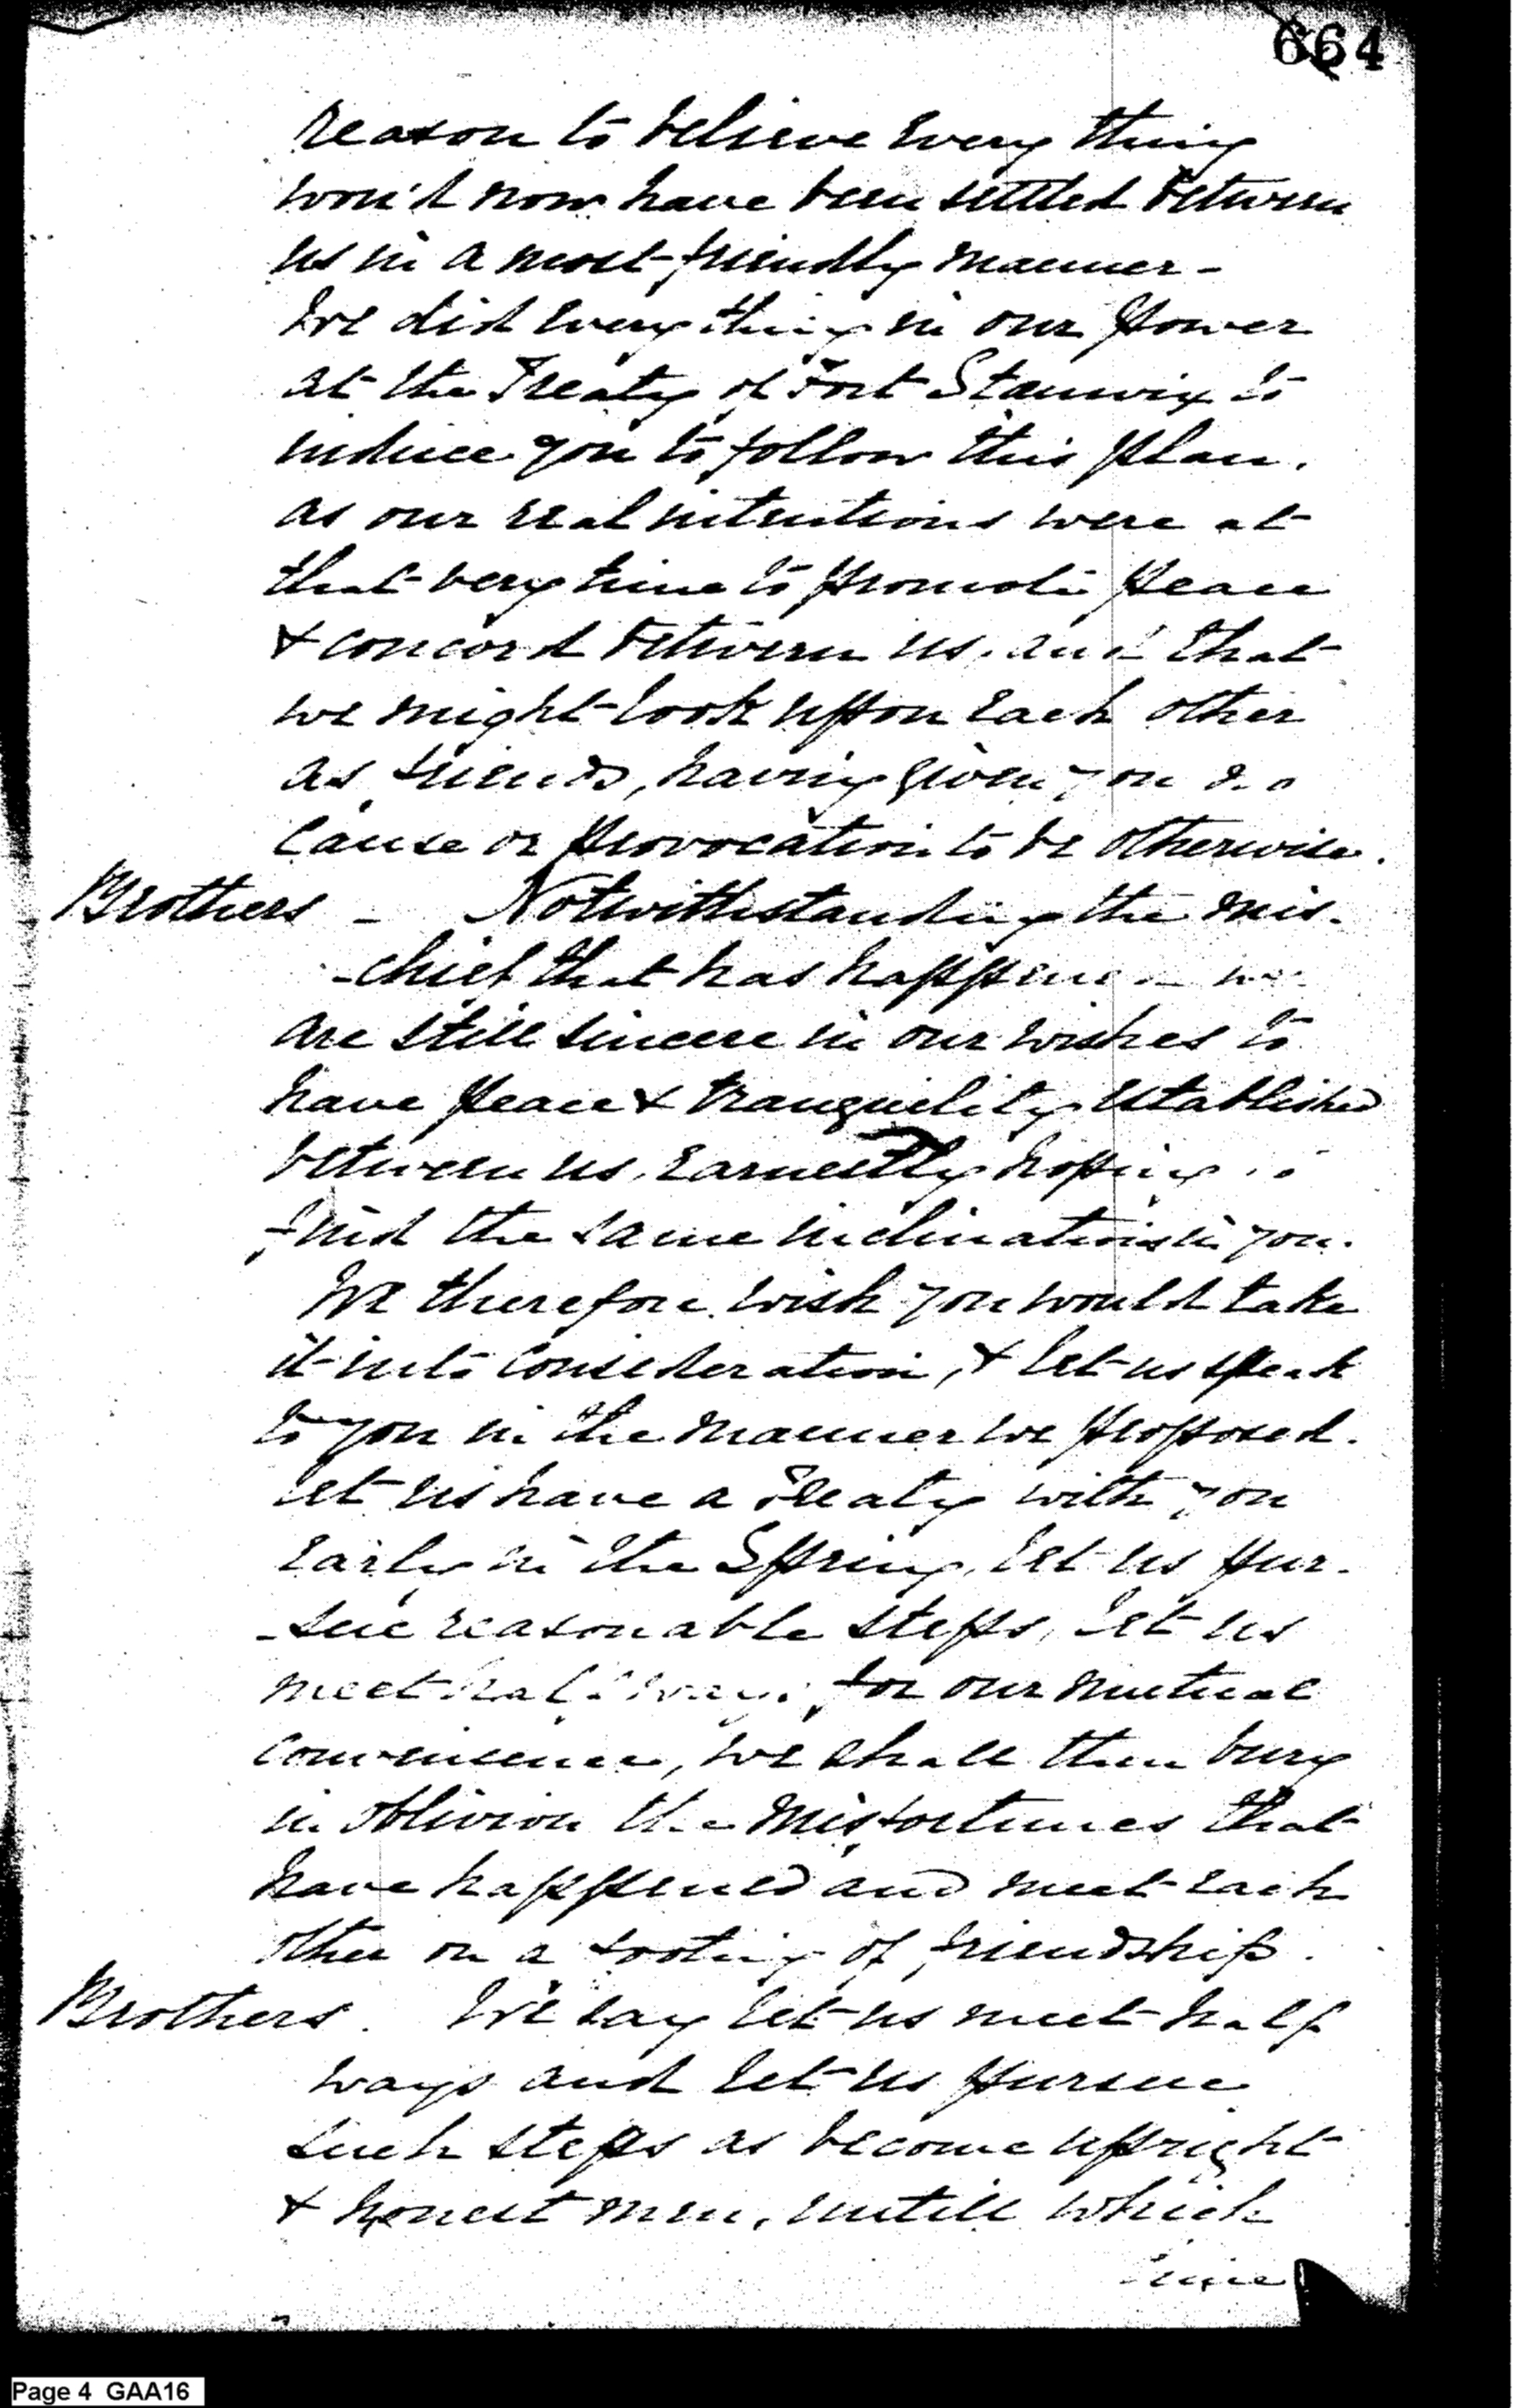 664
reason to believe every thing
wou'd now have been settled between
us in a most friendly manner -
We did every thing in our power
at the Treaty of Fort Stanwix to
induce you to follow this plan.
as our real intentions were at
that very time to promote peace
& concord between us, and that
we might look upon each other
as friends, having given you no
cause or provocation to be otherwise.
Brothers - Notwithstanding the mis-
-chief that has happened we
are still sincere in our wishes to
have peace & tranquility established
between us, earnestly hoping to
find the same inclinations in you.
We therefore wish you would take
it into consideration, & let us speak
to you in the manner we proposed.
let us have a Treaty with you
early in the Spring, let us pur-
-sue reasonable steps, let us
meet half ways for our mutual
convenience, we shall then bury
in oblivion the misfortunes that
have happened and meet each
other on a footing of friendship.
Brothers. We say let us meet half
ways and let us pursue
such steps as become upright
& honest men, untill which
time
Page 4 GAA16